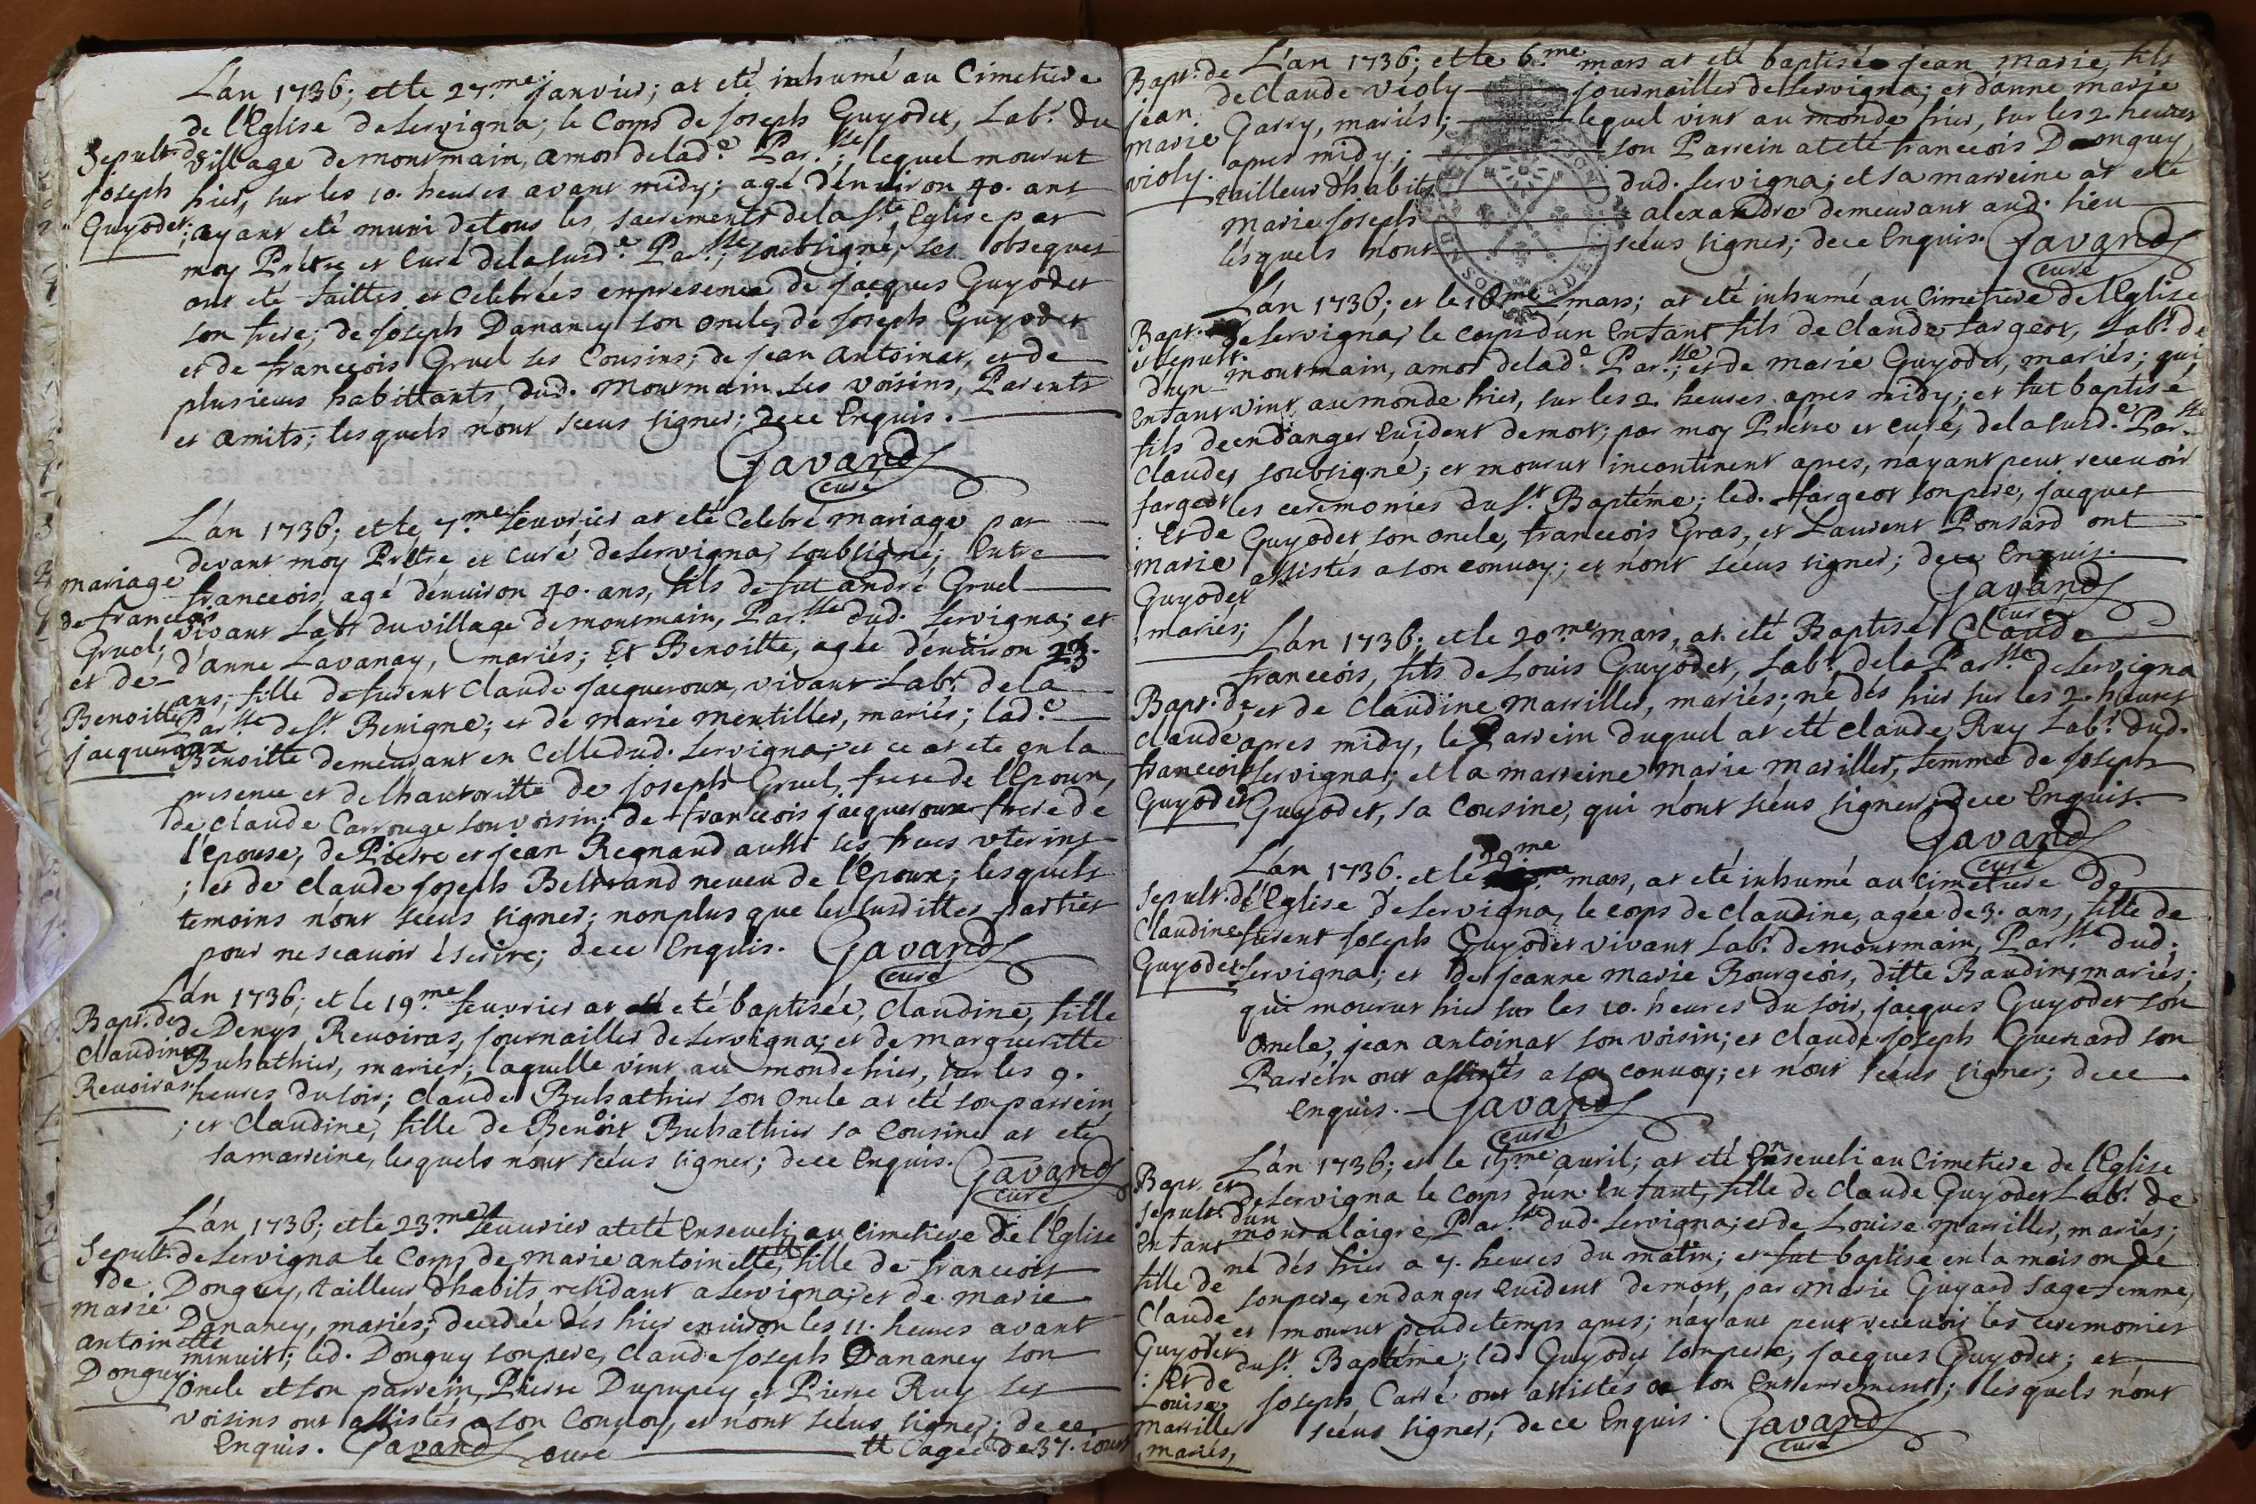 L'an 1736; et le 27.me janvier; at eté inhumé au Cimetiere
de l'Eglise de Servigna; le Corps de joseph Guyodet, Labr. du
village de montmain, amod delade. Parsse.; lequel mourut
hier, sur les 10. heures avant midy; agé d'énuiron 40. ans
; ayant eté muni de tous les sacrements de la Ste. Eglise par
moy Prétre et Curé de la susde. Parsse., soubsigné, ses obseques
ont eté faittes et Celebrées en presence de jacques Guyodet
son frere; de joseph Dananey son oncle, de joseph Guyodet
et de franceois Gruel ses Cousins; de jean antoinat, et de
plusieurs habittants dud. montmain ses voisins, Parents
et amits; lesquels n'ont sceus signer; de ce Enquis.
Gavand
curé
Sepultr. de
joseph
Guyodet
L'an 1736; et le 7.me feuvrier at eté Celebré mariage par
devant moy Prétre et curé de Servigna soubsigné; Entre
franceois, agé d'énuiron 40. ans, fils de fut andré Gruel
vivant Labr du village de montmain, Parsse dud. Servigna; et
d'anne Lavanay, mariés; Et Benoitte, agée d'énuiron 23.
ans, fille de furent Claude jacqueroux, vivant Labr. de la
Parsse de St. Benigne; et de marie mentiller, mariés; lade.
Benoitte demeurant en Celle dud. Servigna; et ce at eté en la
presence et de lhautoritté de joseph Gruel, frere de l'Epoux,
de claude Carrouge son voisin; de franceois jacqueroux frere de
l'épouse, de Pierre et jean Regnaud aussi ses freres vterins
; et de claude joseph Beltrand neveu de l'Epoux; lesquels
temoins n'ont sceus signer; non plus que les susdittes parties
pour ne scauoir éscrire; de ce Enquis. Gavand
curé
mariage
de franceois
Gruel;
et de
Benoitte
jacqueroux
L'an 1736; et le 19.me feuvrier at eté baptisée, Claudine, fille
de Denys Reuoiras, journailler de Servigna; et de margueritte
Buhathier, mariés; laquelle vint au monde hier, sur les 9.
heures du soir; Claude Buhathier son oncle at eté son parrein
; et Claudine, fille de Benoit Buhathier sa Cousine at eté
sa marreine, lesquels n'ont scéus signer; de ce Enquis. Gavand
curé
Bapt. de
Claudine
Reuoiras
L'an 1736; et le 23.me feuurier at eté Enseueli au Cimetiere de l'Eglise
de Servigna le Corps de marie antoinette, tt fille de franceois
Donguy, tailleur d'habits residant a Servigna; et de marie
Dananey, mariés; decedée dés hier enuiron les 11. heures avant
minuit; led. Donguy son pere, Claude joseph Dananey son
oncle et son parrein, Pierre Dupupey et Pierre Ruy ses
voisins ont assistés a son Conuoy, et n'ont scéus signer; de ce
Enquis. Gavand curé tt agée de 37. jours
Sepultr.
de
marie
antoinette
Donguy
L'an 1736; et le 6.me mars at eté baptisée jean marie, fils
de Claude véoly journailler de Servigna; et d'anne marie
Garry, mariés; lequel vint au monde hier, sur les 2. heures
apres midy; son Parrein at eté franceois Donguy
tailleur d'habits dud. Servigna; et sa marreine at eté
marie joseph alexandre demeurant aud. lieu
lesquels n'ont scéus signer; de ce Enquis. Gavand
curé
Bapt. de
jean
marie
violy.
L'an 1736; et le 18.me mars; at eté inhumé au Cimetiere de l'Eglise
de Servigna, le corps d'un Enfant fils de Claude fargeot, Labr. de
montmain, amod delade. Parsse.; et de marie Guyodet, mariés; qui
vint au monde hier, sur les 2. heures apres midy; et fut baptisé
en danger Euident de mort; par moy Prétre et curé, de la susde. Parsse
soubsigné; et mourut incontinent apres, n'ayant peut recevoir
les ceremonies du St. Baptéme; led. fargeot son pere, jacques
Guyodet son oncle, franceois Gras, et Laurent Ponsard ont
assistés a son convoy; et n'ont scéus signer; de ce Enquis.
Gavand
curé
Bapt.
et sepult.
d'un
Enfant
fils de
Claude
fargeot
; Et de
marie
Guyodet
mariés;
L'an 1736; et le 20.me mars, at eté Baptisé Claude
franceois, fils de Louis Guyodet, Labr. de la Parsse de Servigna
; et de Claudine marriller, mariés; né dés hier sur les 2. heures
apres midy, le Parrein duquel at eté claude Ruy Labr. dud.
Servigna; et la marreine marie mariller, femme de joseph
Guyodet, sa Cousine, qui n'ont scéus signer; de ce Enquis.
Gavand
curé
Bapt. de
Claude
franceois
Guyodet
L'an 1736. et le 29me mars, at eté inhumé au Cimetiere de
l'Eglise de Servigna, le corps de claudine, agée de 3. ans, fille de
furent joseph Guyodet vivant Labr. de montmain, Parsse. dud.
Servigna; et de jeanne marie Bourgeois, ditte Baudin, mariés;
qui mourut hier sur les 10. heures du soir, jacques Guyodet son
oncle, jean antoinat son voisin; et claude joseph Guenard son
Parrein ont assistés a son convoy; et n'ont scéus signer; de ce
enquis. Gavand
curé
Sepult. de
Claudine
Guyodet
L'an 1736; et le 15.me auril; at eté Enseueli au Cimetiere de l'Eglise
de Servigna le Corps d'un Enfant, fille de claude Guyodet Labr. de
montalaigre, Parsse dud. Servigna; et de Louise marriller, mariés;
né dés hier a 7. heures du matin; et fut baptisé en la maison de
son pere, en danger Euident de mort, par marie Guyard sage femme,
et mourut peu de temps apres; n'ayant peut recevoir les ceremonies
du St. Baptéme; led. Guyodet son pere, jacques Guyodet; et
joseph Carré ont assistés a son Enterrement; lesquels n'ont
scéus signer; de ce Enquis. Gavand
curé
Bapt. et
Sepult.
d'un
Enfant
fille de
Claude
Guyodet
; et de
Louise
marriller
mariés,